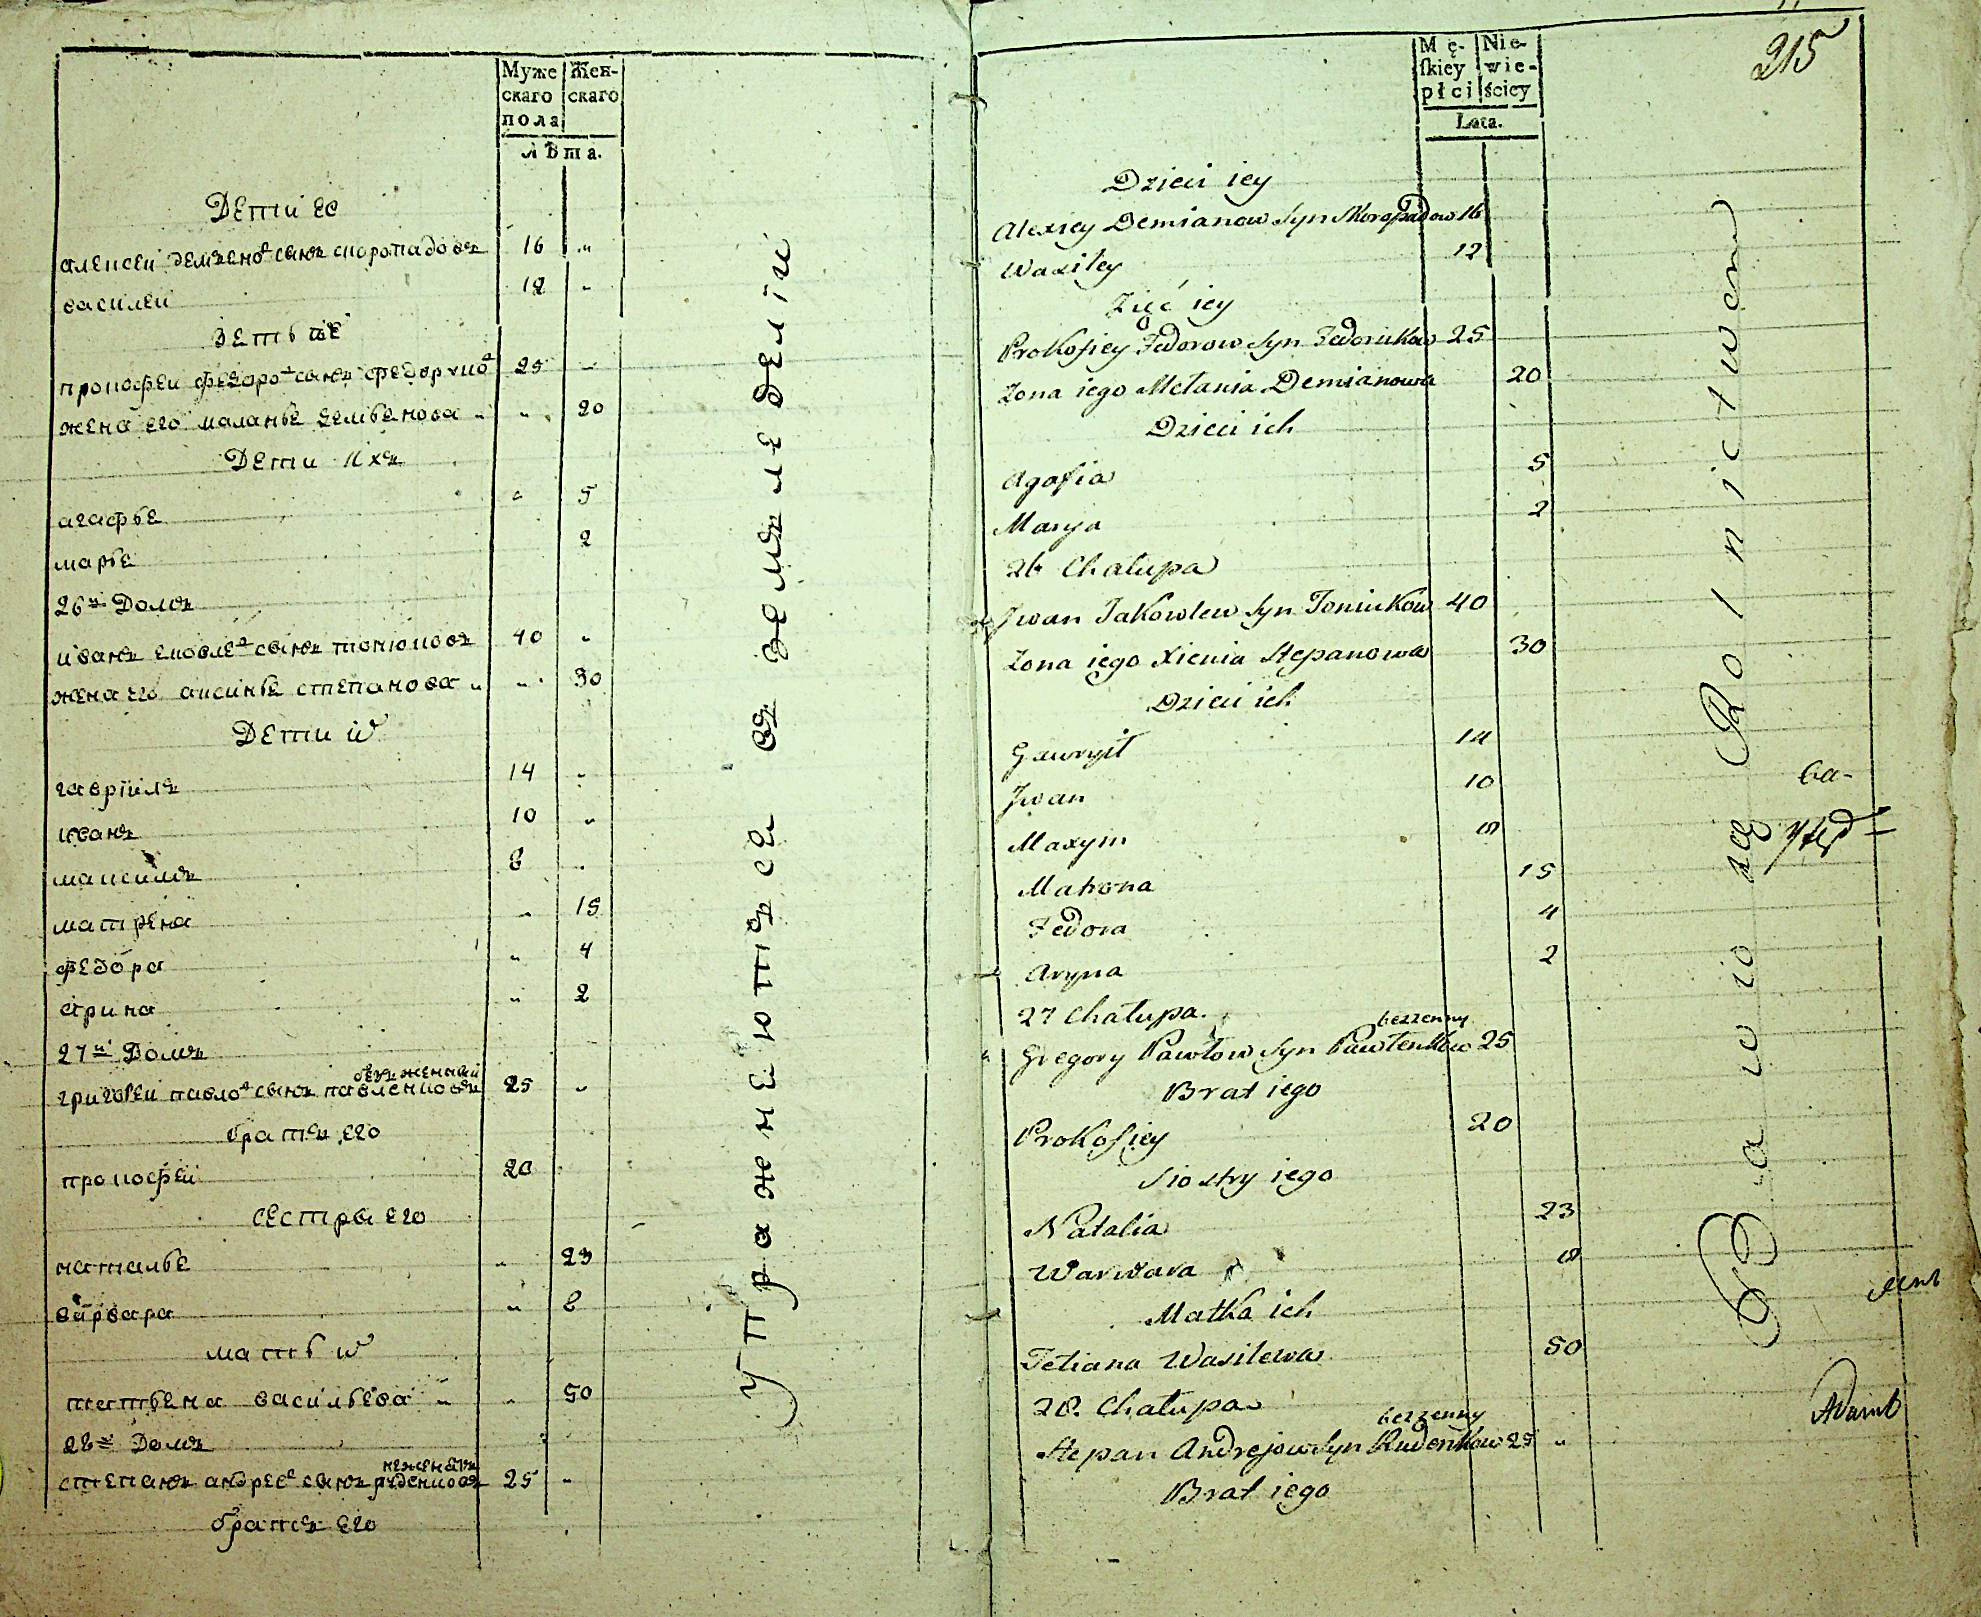 Муже
скаго
пола
Жен-
скаго
лѣта.
Дети ее
алексеи демьено сынъ скоропадовъ 16 "
василеи 12 "
зеть ее
прокофеи федоро сынъ федорчко 25 "
жена его маланье демьенова " " 20
Дети ихъ
агафье " 5
марье 2
26й Домъ
иванъ яковле сынъ тонюковъ 40 "
жена его аксинье степанова " " 30
Дети и
гавріилъ 14 "
иванъ 10 "
максимъ 8 "
матрена " 15
федора " 4
арина " 2
27й Домъ
безженный
григореи павло сынъ павленковъ 25 "
братъ его
прокофеи 20
сестры его
наталье " 23
варвара " 8
мать и
татьена васильева " " 50
28й Домъ
неженатъ
степанъ андрее сынъ руденковъ 25 "
братъ его
Упражнеютце въ земле делiи
215
Mę-
ſkiey
płci
Nie-
wie-
ściey
Lata.
Dzieci iey
Alexiey Demianow syn Skoropadow 16
Wasiley 12
Zięć iey
Prokofiey Fedorow syn Fedorukow 25
Zona iego Mełania Demianowa 20
Dzieci ich
Agafia 5
Marya 2
26 Chałupa
Jwan Jakowlew syn Toniukow 40
Zona iego Xienia Stepanowa 30
Dzieci ich
Gawryił 14
Jwan 10
Maxym 8
Matrona 15
Fedora 4
Aryna 2
27 Chałupa.
bezzenny
Gregory Pawłow syn Pawłenkow 25
Brat iego
Prokofiey 20
Siostry iego
Natalia 23
Warwara 8
Matka ich
Tetiana Wasilewa 50
28. Chałupa
bezzenny
Stepan Andrejow syn Rudenkow 25 "
Brat iego
Bawio się Rolnictwem